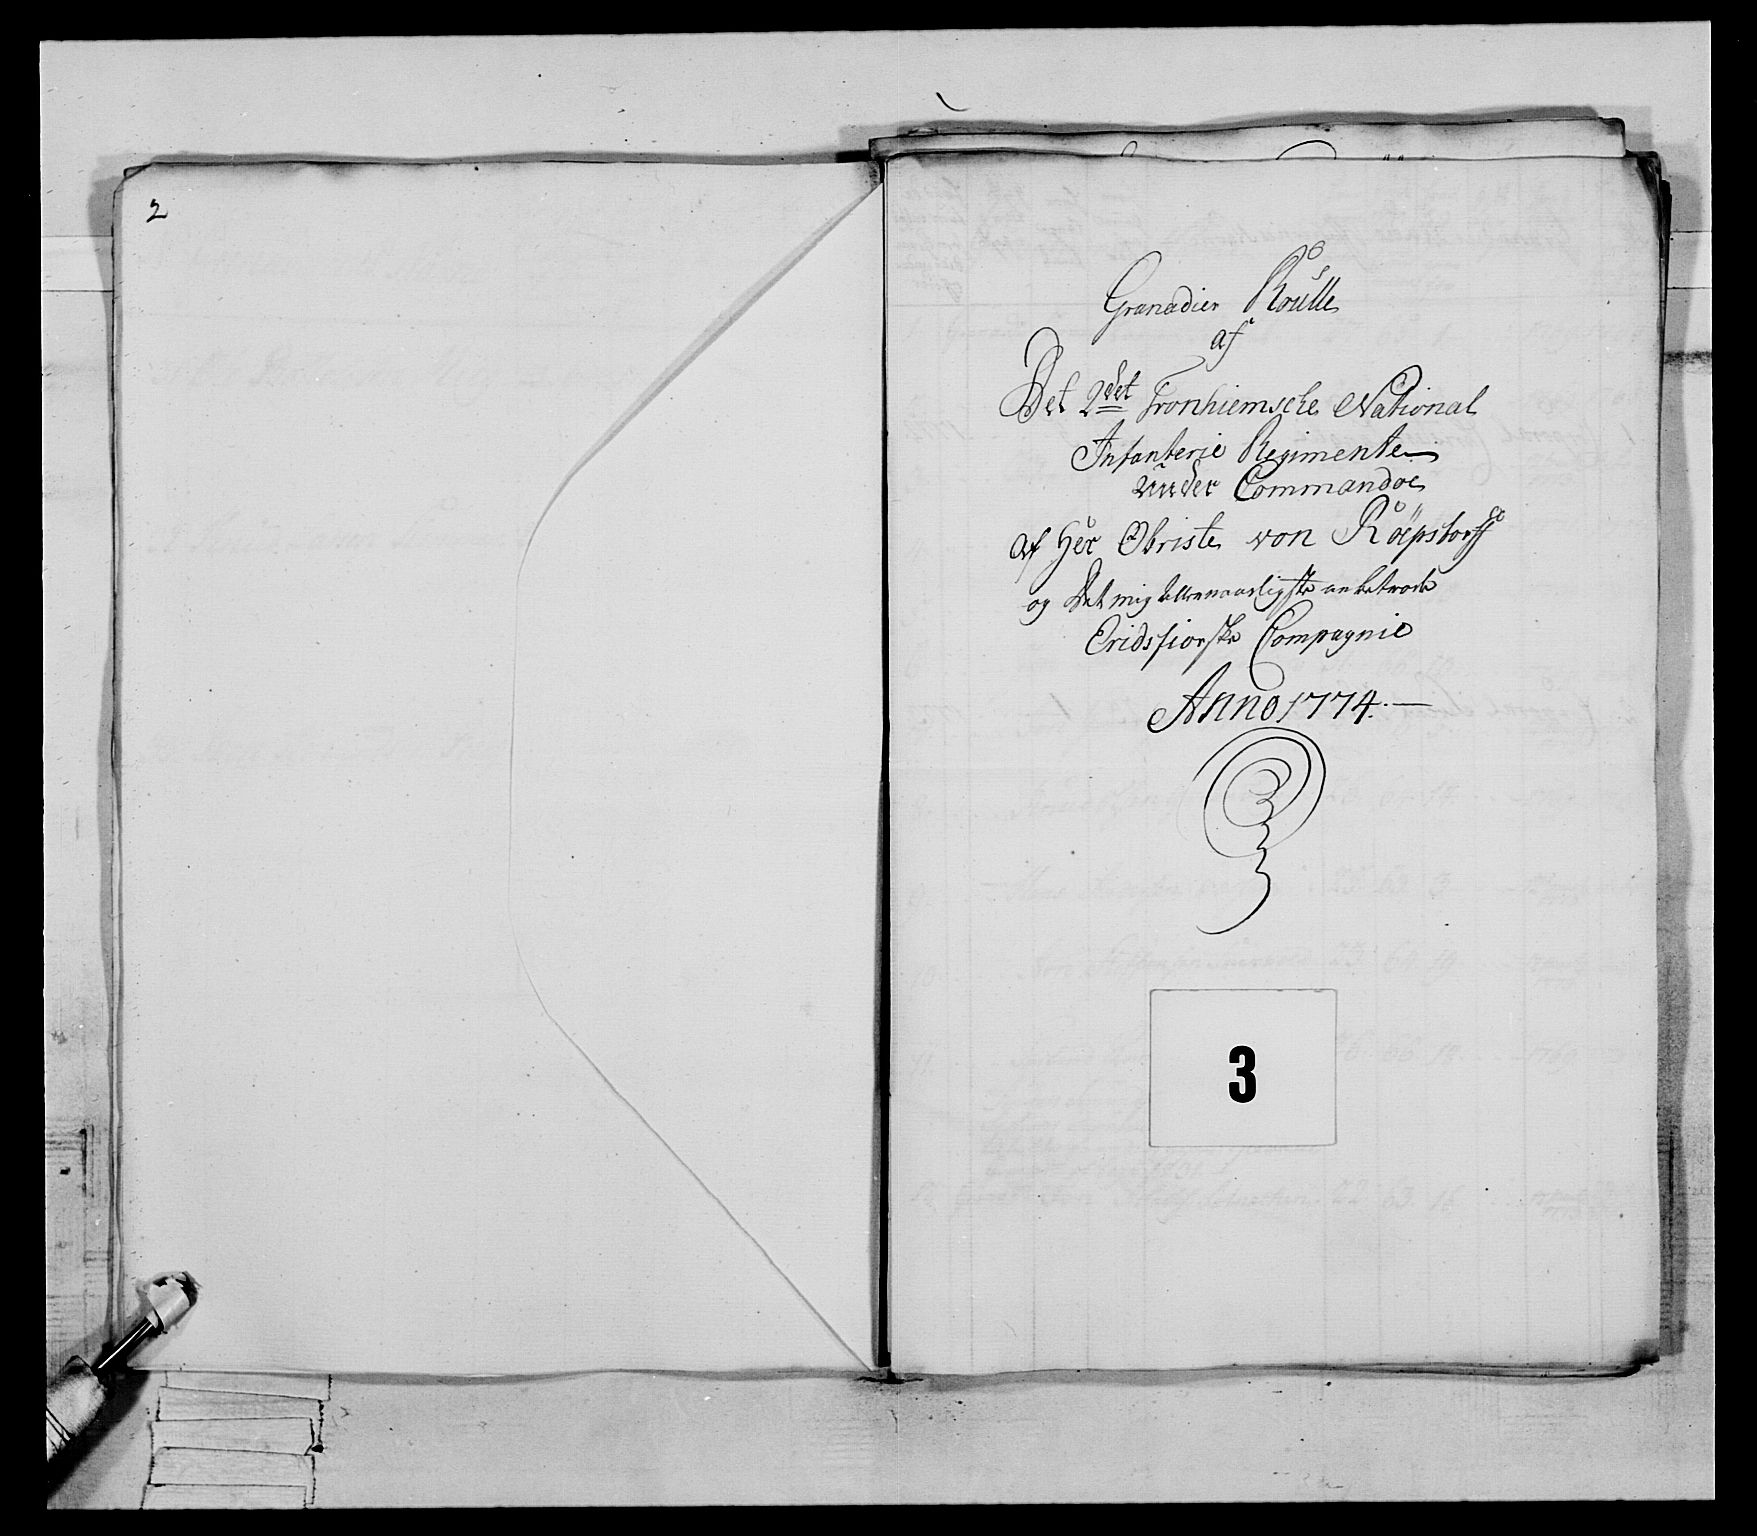 2
Granadier Roulle
af
Det 2det Tronhiemsche National
Infanterie Regimente
under Commandoe
af Her Obriste von Röepstorff
og Det mig allernaadigste anbetroede
Eridsfiorske Compagnie
Anno 1774.
3